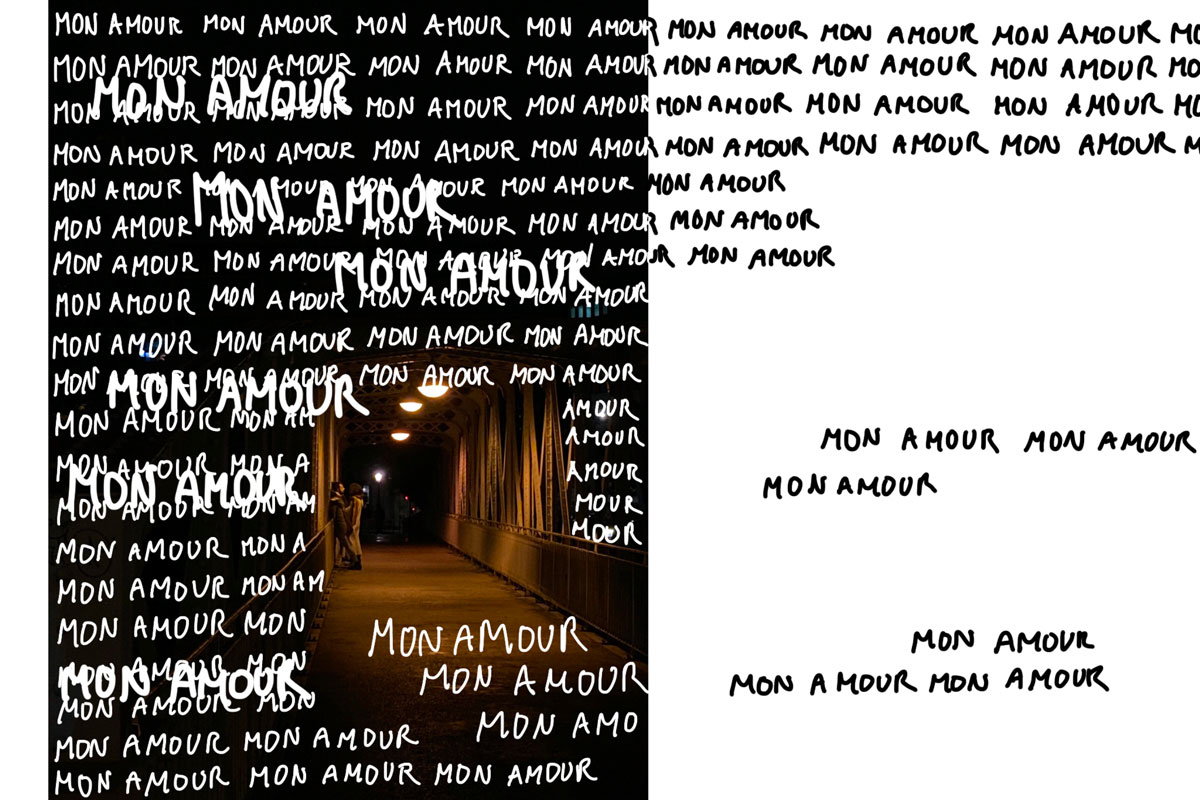 MON AMOUR MON AMOUR MON AMOUR MON AMOUR MON AMOUR MON AMOUR MON AMOUR MO
MON AMOUR MON AMOUR MON AMOUR MON AMOUR MON AMOUR MON AMOUR MON AMOUR MO
MON AMOUR
MON AMOUR MON AMOUR MON AMOUR MON AMOUR MON AMOUR MON AMOUR MON AMOUR MO
MON AMOUR MON AMOUR MON AMOUR MON AMOUR MON AMOUR MON AMOUR MON AMOUR M
MON AMOUR MON AMOUR MON AMOUR MON AMOUR MON AMOUR
MON AMOUR
MON AMOUR MON AMOUR MON AMOUR MON AMOUR MON AMOUR
MON AMOUR MON AMOUR MON AMOUR MON AMOUR MON AMOUR
MON AMOUR
MON AMOUR MON AMOUR MON AMOUR MON AMOUR
MON AMOUR MON AMOUR MON AMOUR MON AMOUR
MON MON AMOUR MON AMOUR MON AMOUR
MON AMOUR
MON AMOUR MON AM AMOUR
AMOUR MON AMOUR MON AMOUR
MON AMOUR MON A AMOUR
MON AMOUR MON AMOUR
MON AMOUR MON AM MOUR
MOUR
MON AMOUR MON A
MON AMOUR MON AM
MON AMOUR MON MON AMOUR MON AMOUR
MON AMOUR MON MON AMOUR MON AMOUR MON AMOUR
MON AMOUR
MON AMOUR MON MON AMO
MON AMOUR MON AMOUR
MON AMOUR MON AMOUR MON AMOUR